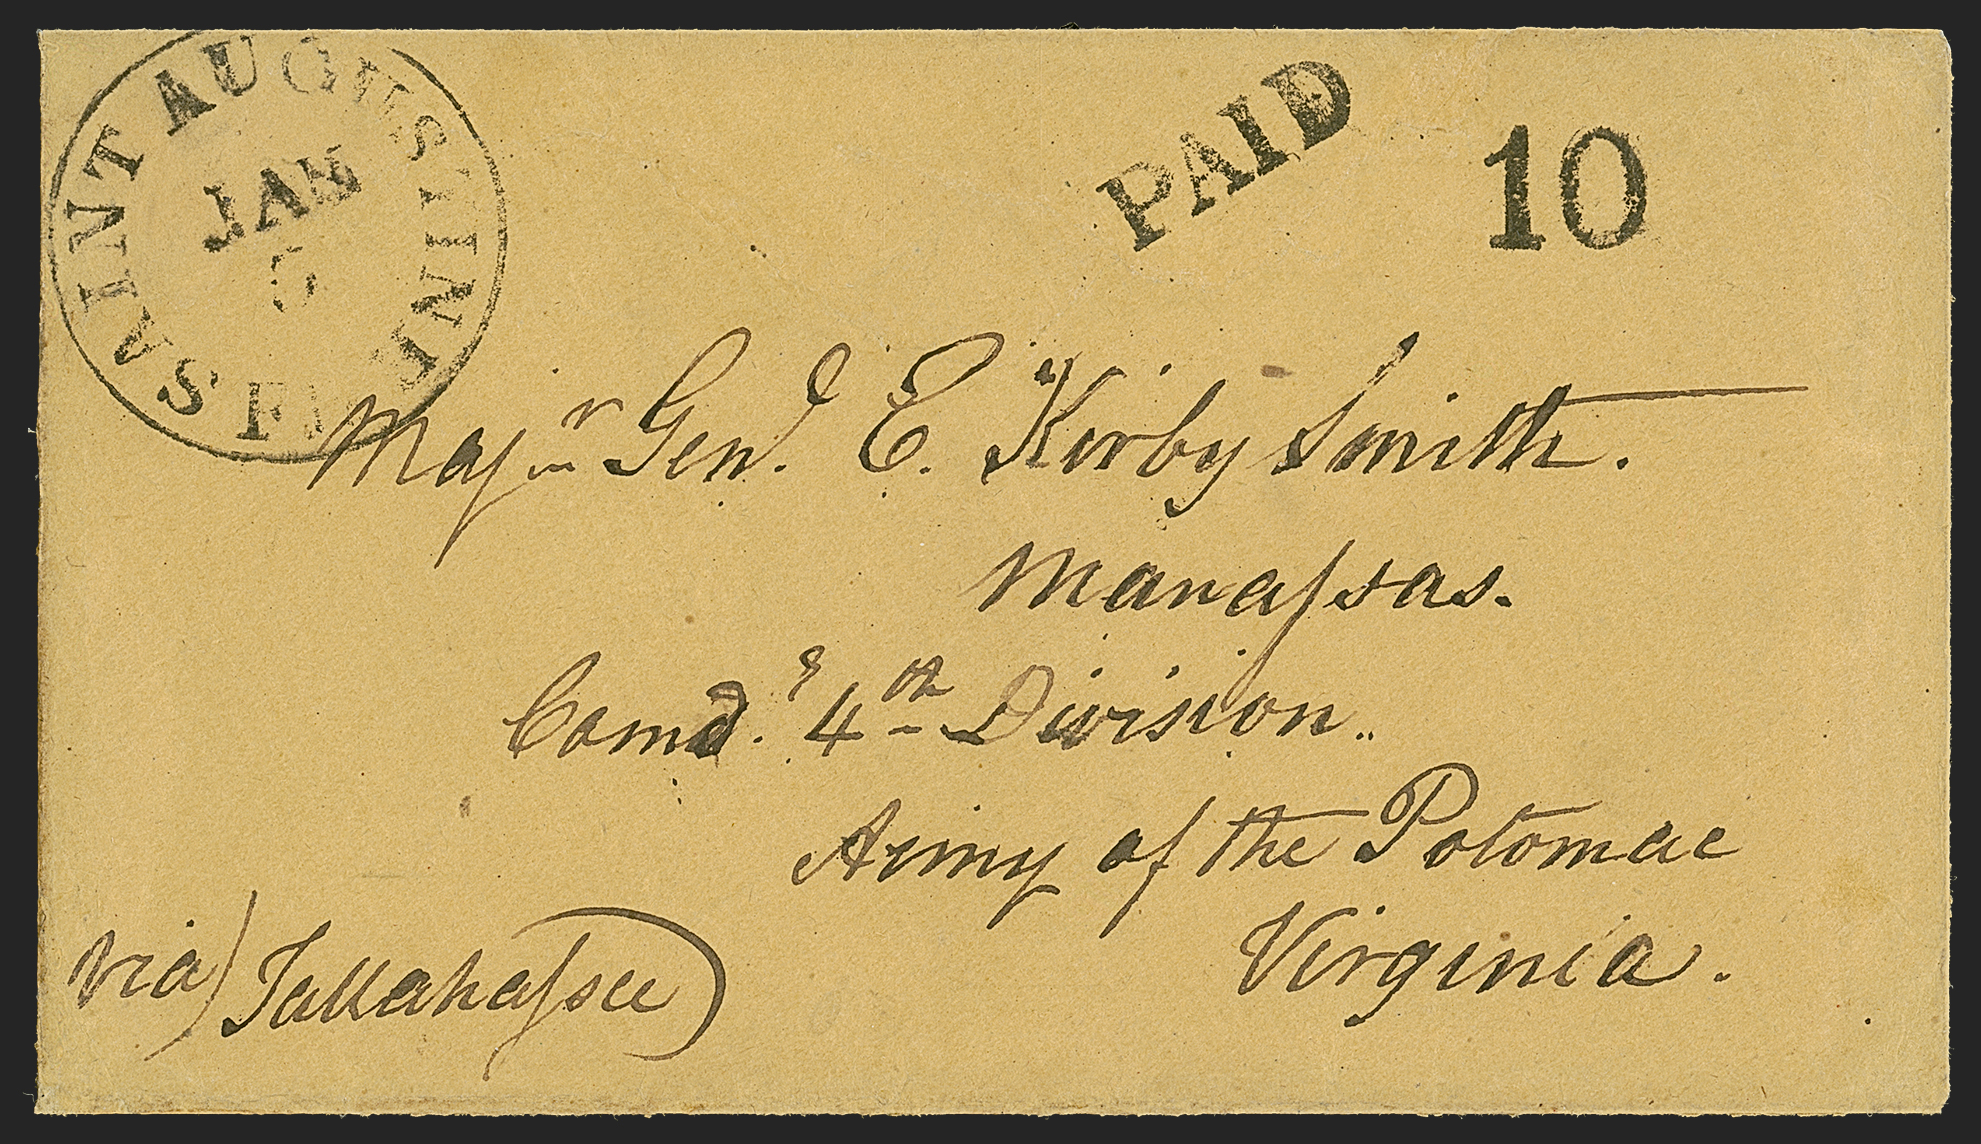 SAINT AUGUSTINE
FL
JAN
PAID
10
Majr Genl. E. Kirby Smith.
Manassas.
Comdg. 4th Division.
Army of the Potomac
Virginia.
via) Tallahassee)